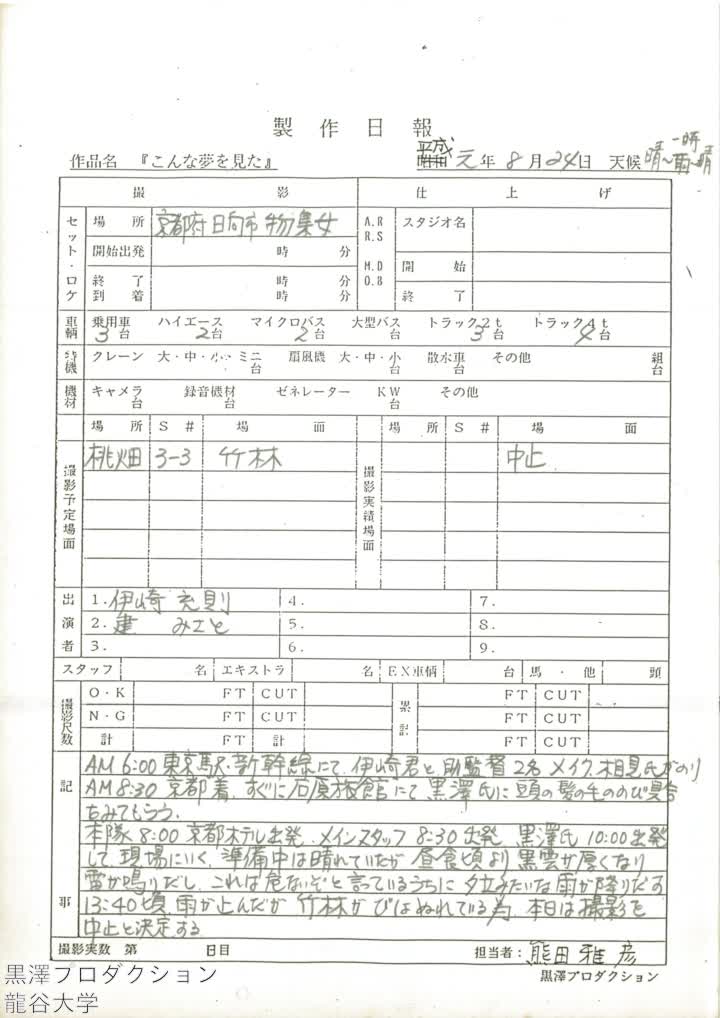 製作日報
作品名 『こんな夢を見た』 平成 元年 8月 24日 天候 晴〜一時雨〜晴
撮影 仕上げ
セット・ロケ 場所 京都府日向市物集女 A.R R.S M.D O.B スタジオ名
開始出発 時 分 開始
終了 到着 時 分 時 分 終了
車輌 乗用車 3台 ハイエース 2台 マイクロバス 2台 大型バス トラック2t 3台 トラック4t 4台
特機 クレーン 大・中・小・ミニ 台 扇風機 大・中・小 台 散水車 台 その他 組 台
機材 キャメラ 台 録音機材 台 ゼネレーター KW 台 その他
場所 S# 場面 場所 S# 場面
撮影予定場面 桃畑 3-3 竹林 撮影実績場面 中止
出演者 1. 伊崎充則 4. 7.
2. 建みさと 5. 8.
3. 6. 9.
スタッフ 名 エキストラ 名 EX車輌 台 馬・他 頭
撮影尺数 O・K FT CUT 累計 FT CUT
N・G FT CUT FT CUT
計 FT 計 FT CUT
記事
AM 6:00 東京駅・新幹線にて、伊崎君と助監督2名 メイク、相見氏がのり
AM 8:30 京都着、すぐに石原旅館にて黒澤氏に頭の髪の毛ののび具合
をみてもらう。
本隊 8:00 京都ホテル出発、メインスタッフ 8:30 出発、黒澤氏 10:00 出発
して、現場にいく、準備中は晴れていたが 昼食頃より 黒雲が厚くなり
雷が鳴りだし、これは危ないぞと言っているうちに 夕立みたいな雨が降りだす
13:40頃、雨が止んだが 竹林がびしょぬれている為、本日は撮影を
中止と決定する
撮影実数 第 日目 担当者: 熊田雅彦
黒澤プロダクション
黒澤プロダクション
龍谷大学